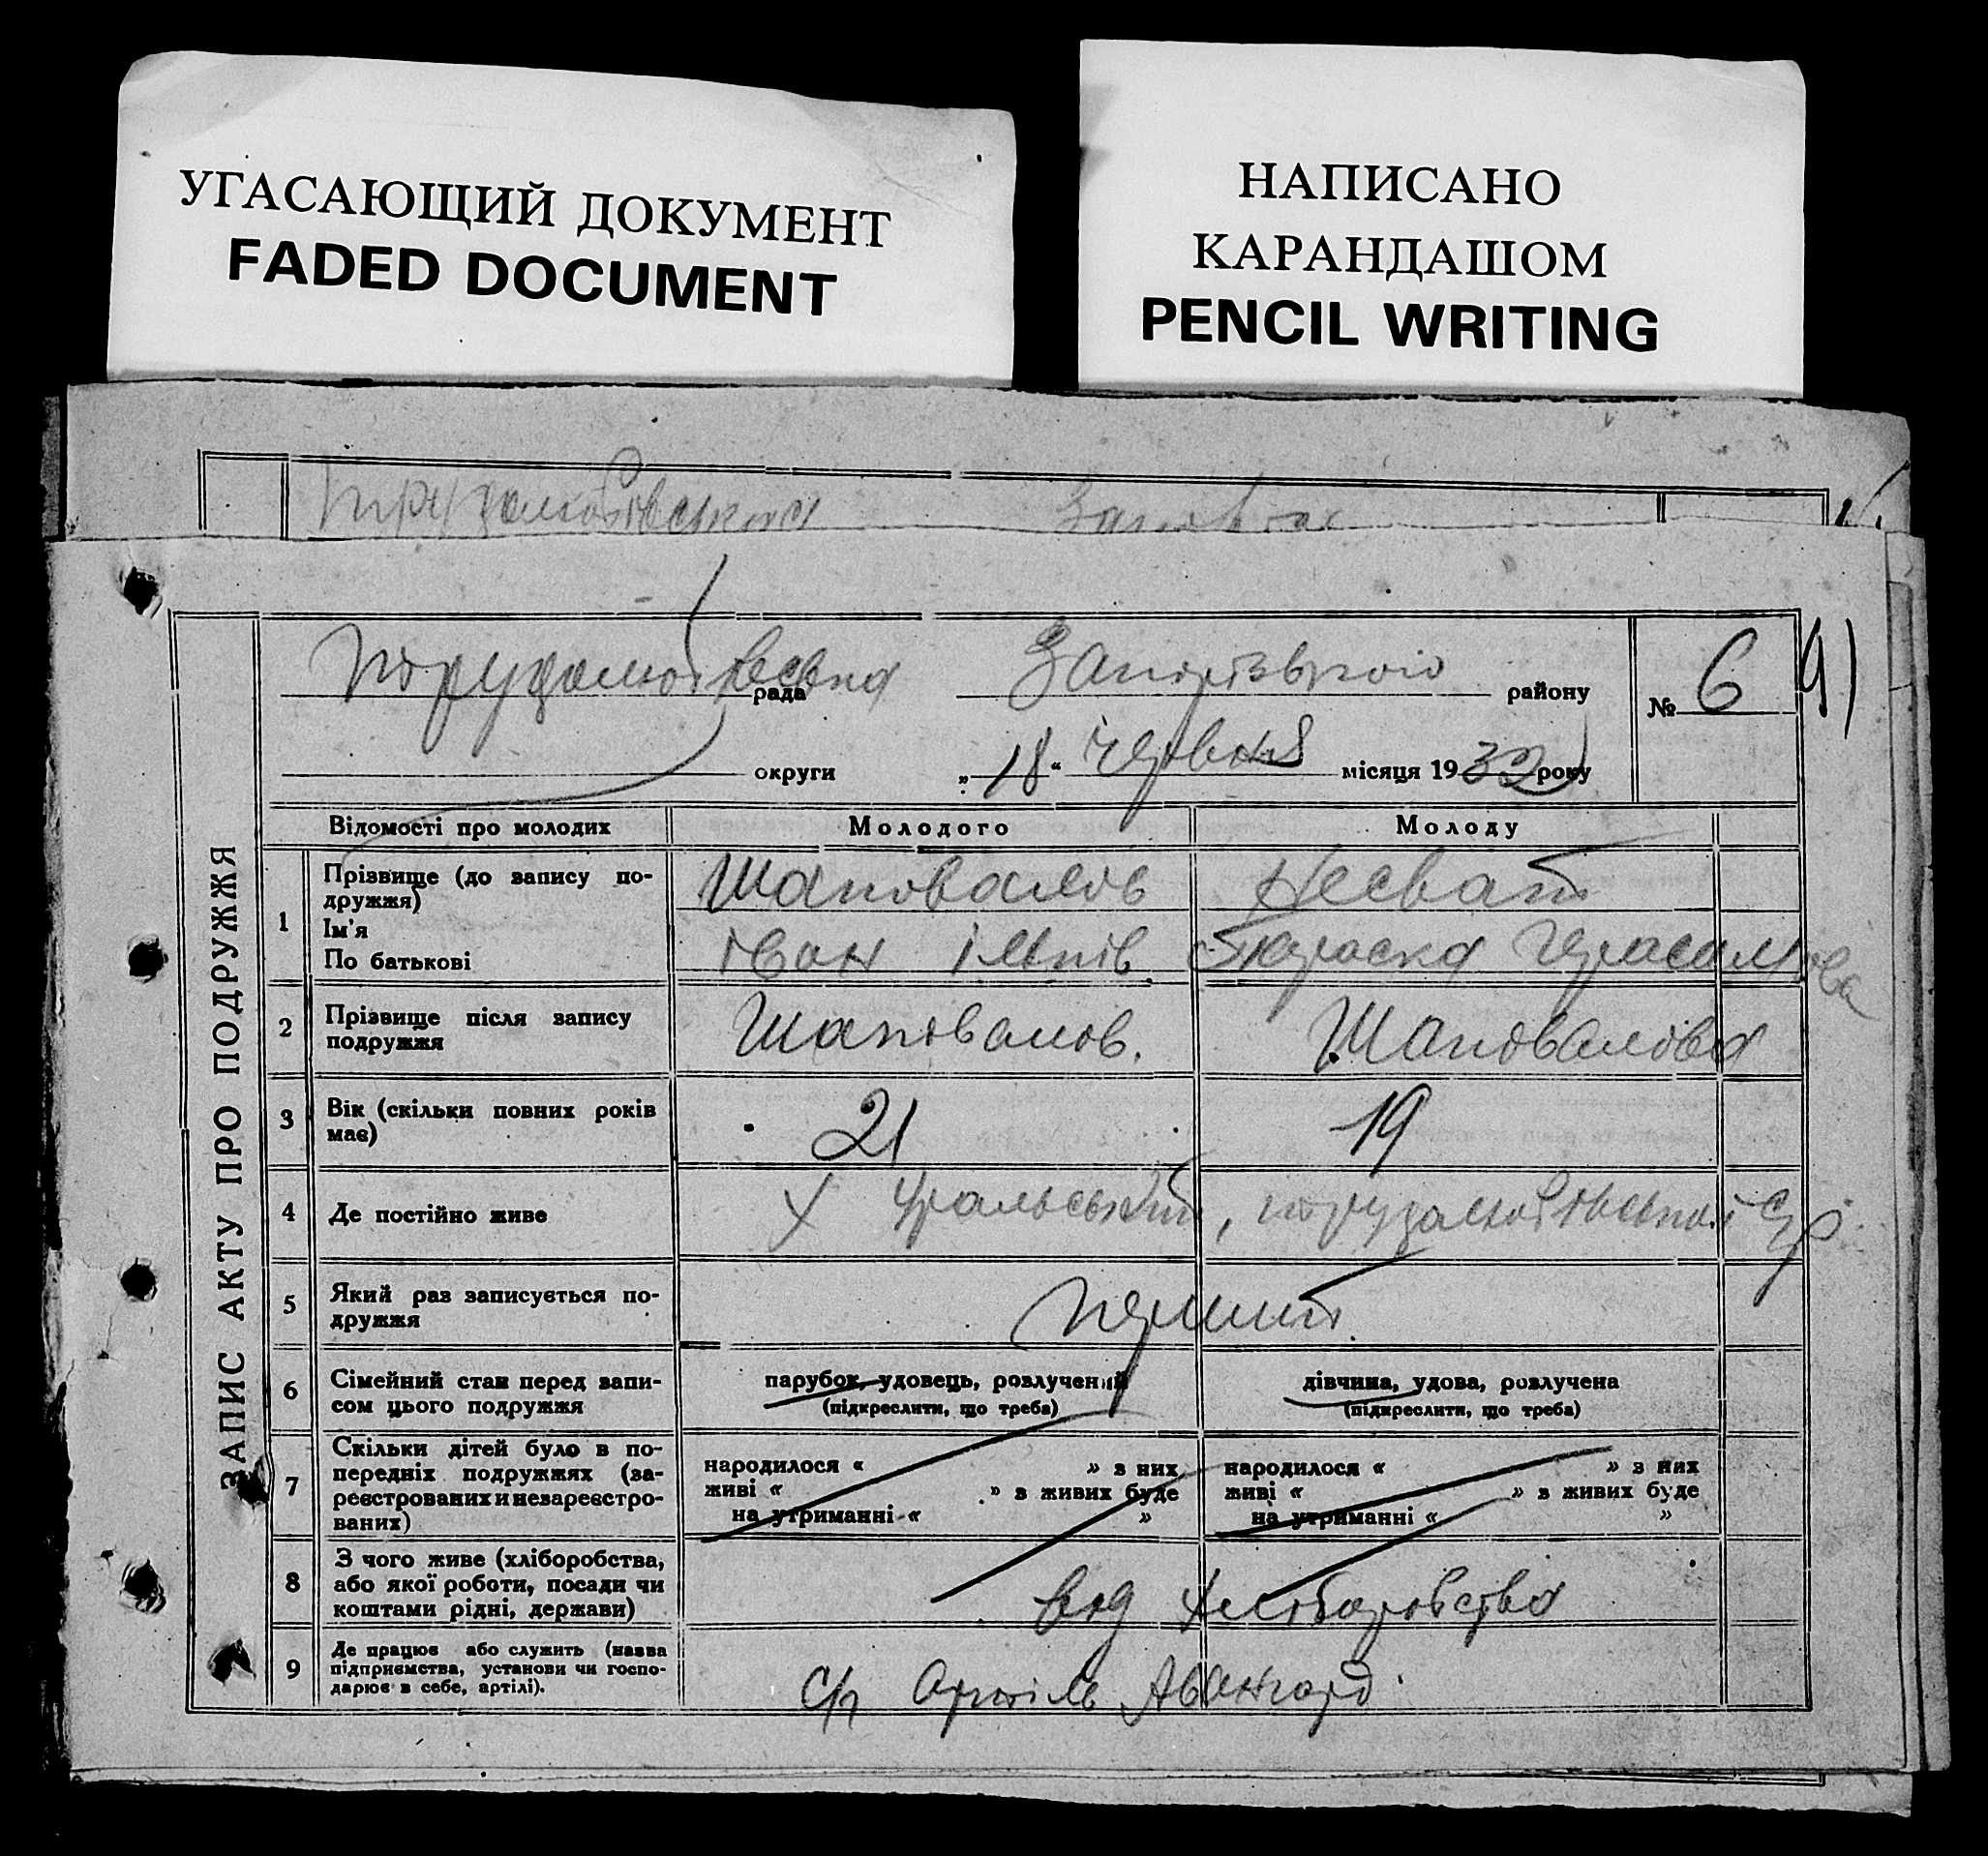 УГАСАЮЩИЙ ДОКУМЕНТ
FADED DOCUMENT
НАПИСАНО
КАРАНДАШОМ
PENCIL WRITING
ЗАПИС АКТУ ПРО ПОДРУЖЖЯ
рада Запорізького району
№ 6
91
округи „18“ Червня місяця 1932 року
Відомості про молодих Молодого Молоду
1 Прізвище (до запису подружжя) Шаповалов Несват
Ім'я
По батькові Іван Ілліч Параска Герасимова
2 Прізвище після запису подружжя Шаповалов. Шаповалова
3 Вік (скільки повних років має) 21 19
4 Де постійно живе Х Уральський,
5 Який раз записується подружжя перший.
6 Сімейний стан перед записом цього подружжя парубок, удовець, розлучений дівчина, удова, розлучена
(підкреслити, що треба) (підкреслити, що треба)
7 Скільки дітей було в попередніх подружжях (зареєстрованих и незареєстрованих)
народилося « » з них народилося « » з них
живі « » з живих буде живі « » з живих буде
на утриманні « » на утриманні « »
8 З чого живе (хліборобства, або якої роботи, посади чи коштами рідні, держави) від хліборобства
9 Де працює або служить (назва підприємства, установи чи господарює в себе, артілі). с/г Артіль Авангард.